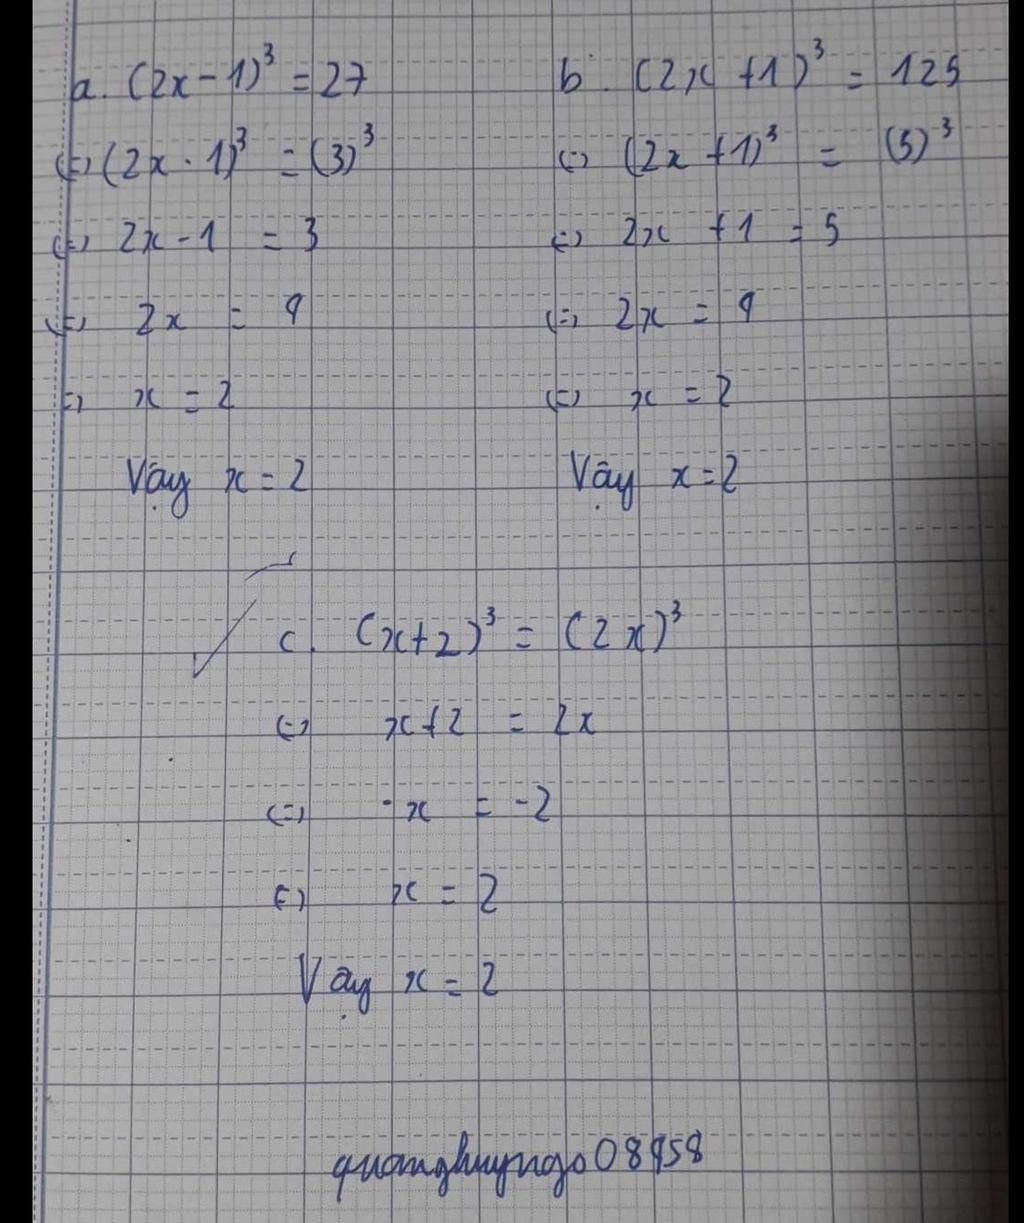 a. (2x-1)³ = 27
(=) (2x-1)³ = (3)³
(=) 2x-1 = 3
(=) 2x = 4
(=) x = 2
Vậy x = 2
b. (2x+1)³ = 125
(=) (2x+1)³ = (5)³
(=) 2x+1 = 5
(=) 2x = 4
(=) x = 2
Vậy x = 2
c. (x+2)³ = (2x)³
(=) x+2 = 2x
(=) -x = -2
(=) x = 2
Vậy x = 2
quanghuyngo08458